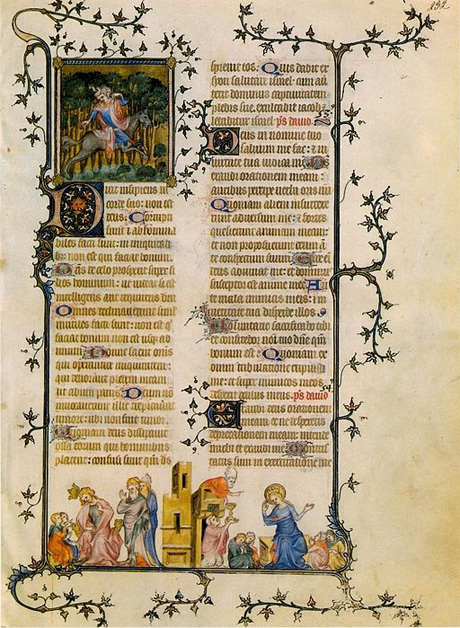 Dixit insipiens in
corde suo: non est
deus. Corrupti
sunt et abomina
biles facti sunt in iniquitati
non est qui faciat bonum.
de celo prospexit super fi
lios hominum: ut videat si est
intelligens aut requirens dm
Omnes declinaverunt simul
inutiles facti sunt: non est q
faciat bonum non est usq ad
unum. Nonne scient omnes
qui operantur iniquitatem:
qui devorant plebem meam
ut cibum panis. Deum no
invocaverunt illic trepidaverunt
timore: ubi non fuit timor.
Quoniam deus dissipavit
ossa eorum qui hominibus
placent: confusi sunt qm ds
sprevit eos. Quis dabit ex
syon salutare israel: cum
dominus captivitatem
plebis sue. exultabit iacob
letabitur israel. ps david.
Deus in nomine tuo
salvum me fac: et in
virtute tua iudica me. Deus
exaudi orationem meam:
auribus percipe verba oris mei
Quoniam alieni insurrexe
runt adversum me: et fortes
quesierunt animam meam:
et non proposuerunt deum
conspectum suum. Ecce
deus adiuvat me: et dominus
susceptor est anime
te mala inimicis meis: et in
veritate tua disperde illos.
Voluntarie sacrificabo tibi
et confitebor nomini tuo dne qm
bonum est. Quoniam ex
omni tribulatione eripuisti
me: et super inimicos meos
meus. ps david
Exaudi deus orationem
meam: et ne despexeris
deprecationem meam: intende
michi et exaudi me. Contris
tatus sum in exercitatione me